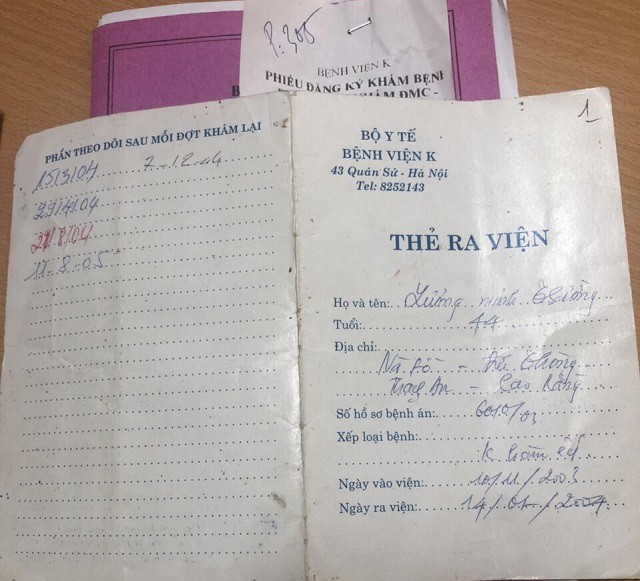 P. 305
BỆNH VIỆN K
PHIẾU ĐĂNG KÝ KHÁM BỆNH
KHÁM ĐMC -
PHẦN THEO DÕI SAU MỖI ĐỢT KHÁM LẠI
15/3/04 7-12-04
29/4/04
/8/04
11-8-05
1
BỘ Y TẾ
BỆNH VIỆN K
43 Quán Sứ - Hà Nội
Tel: 8252143
THẺ RA VIỆN
Họ và tên: Lương minh
Tuổi: 44
Địa chỉ:
Cao Bằng
Số hồ sơ bệnh án: 6010/03
Xếp loại bệnh:
K
Ngày vào viện: 10/11/2003
Ngày ra viện: 14/01/2004